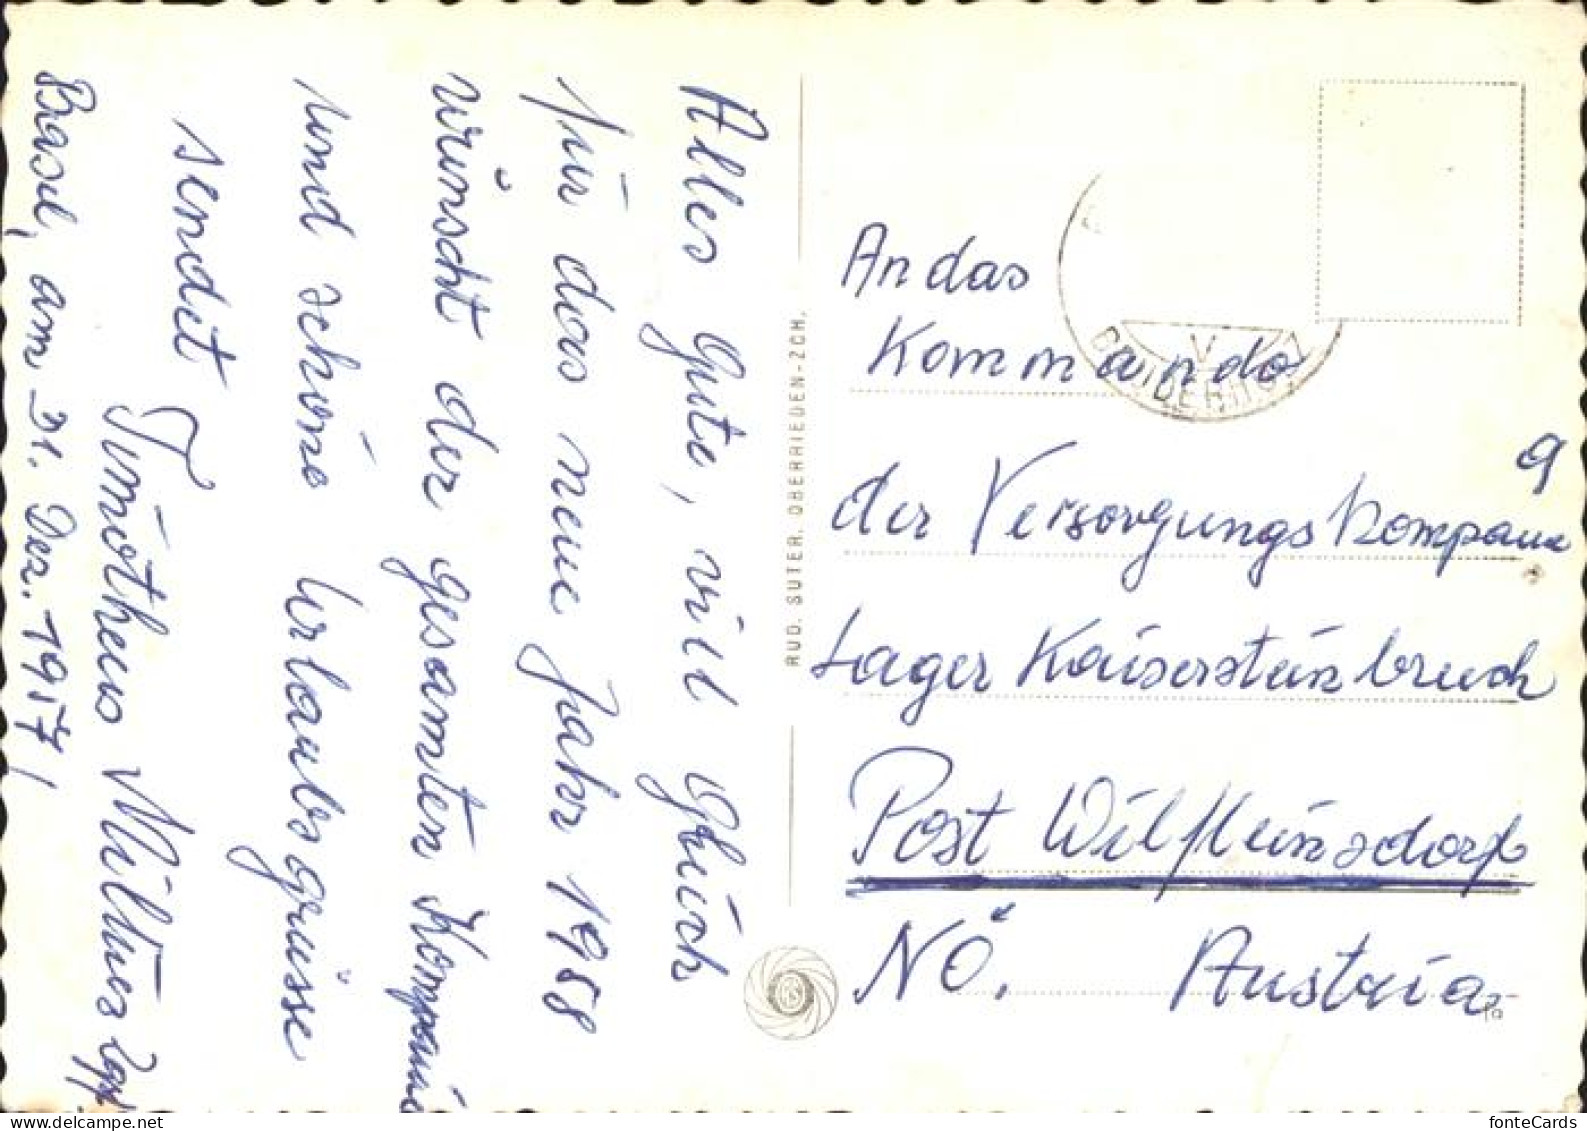 Alles Gute, viel Glück
für das neue Jahr 1958
wünscht der gesamten Kompanie
und schöne Urlaubsgrüsse
sendet
Timotheus
Basel, am 31. Dez. 1957!
RUD. SUTER, OBERRIEDEN-ZCH.
RS
An das
Kommando
der Versorgungskompanie
Lager Kaisersteinbruch
Post Wilfleinsdorf
NÖ. Austria
fonteCards